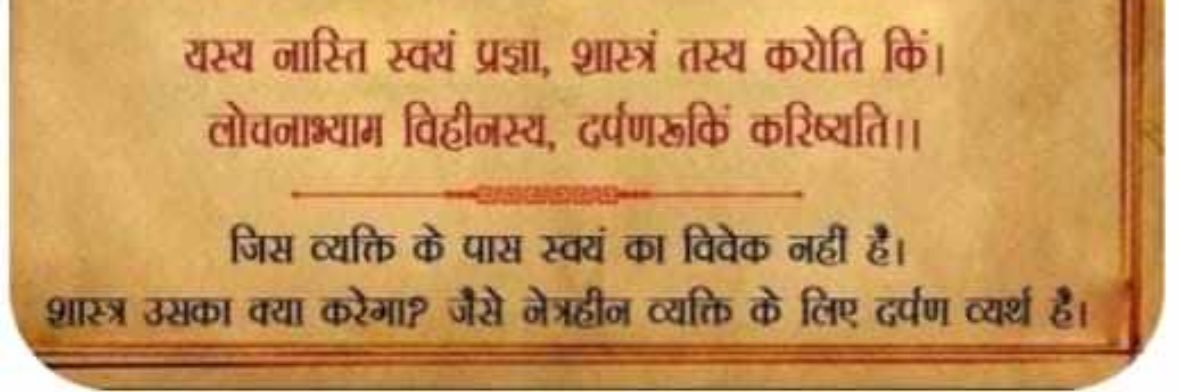 यस्य नास्ति स्वयं प्रज्ञा, शास्त्रं तस्य करोति किं।
लोचनाभ्याम विहीनस्य, दर्पणरूकिं करिष्यति।।
जिस व्यक्ति के पास स्वयं का विवेक नहीं है।
शास्त्र उसका क्या करेगा? जैसे नेत्रहीन व्यक्ति के लिए दर्पण व्यर्थ है।